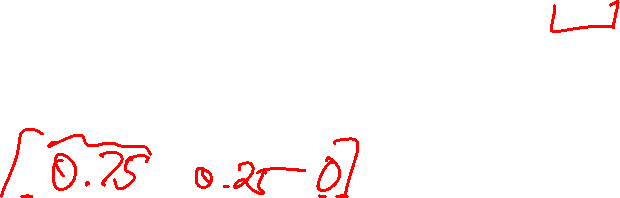 [0.75 0.25 0]